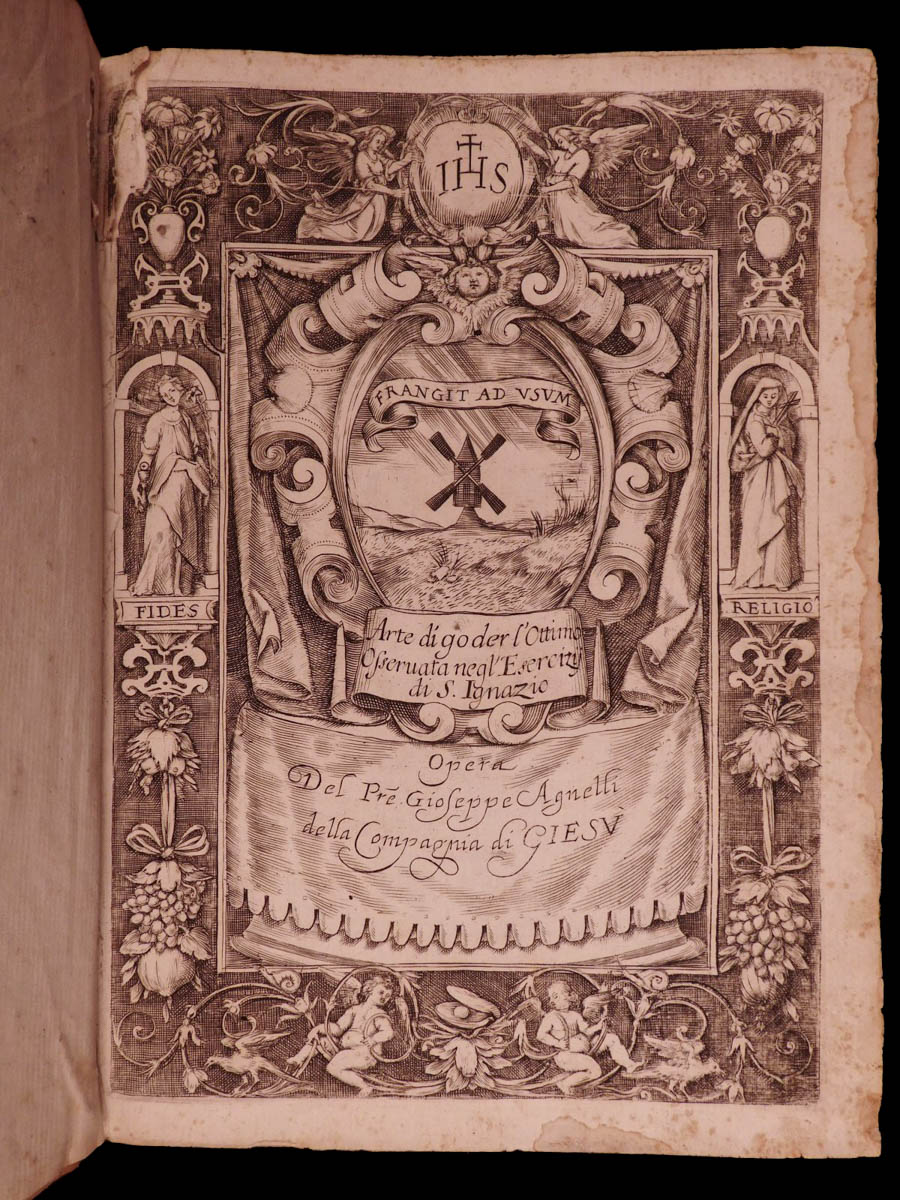 IHS
FRANGIT AD VSVM
FIDES
RELIGIO
Arte di goder l'Ottimo
Osseruata negl'Esercizij
di S. Ignazio
Opera
Del Prẽ. Gioseppe Agnelli
della Compagnia di GIESV̀